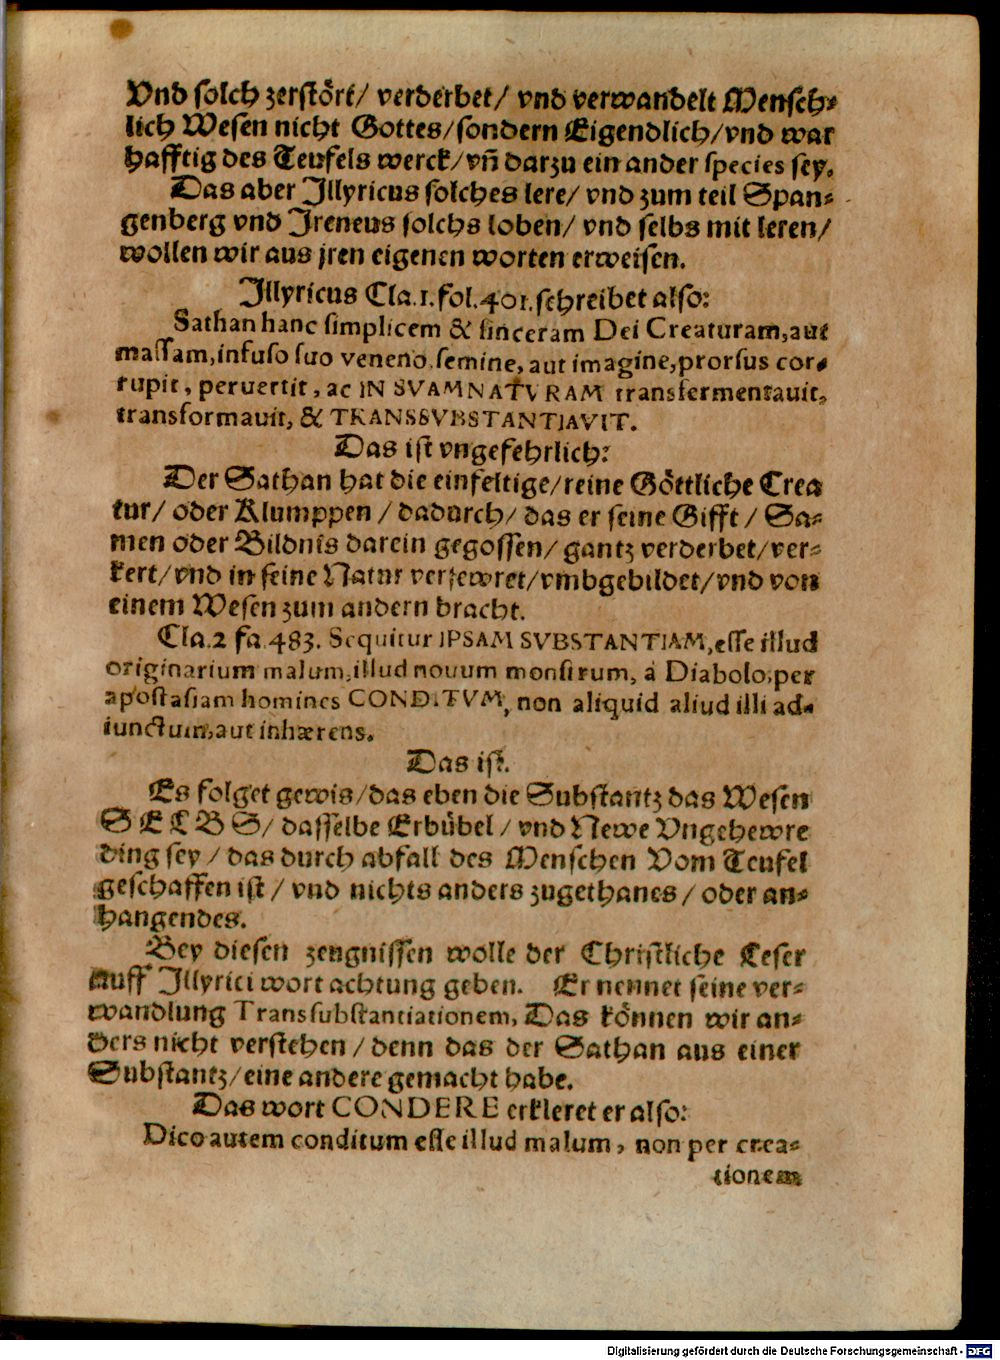 Vnd solch zerstört/ verderbet/ vnd verwandelt Mensch-
lich Wesen nicht Gottes/sondern Eigendlich/vnd war
hafftig des Teufels werck/vñ darzu ein ander species sey.
Das aber Illyricus solches lere/ vnd zum teil Span-
genberg vnd Ireneus solchs loben/ vnd selbs mit leren/
wollen wir aus jren eigenen worten erweisen.
Illyricus Cla.1.fol.401.schreibet also:
Sathan hanc simplicem & sinceram Dei Creaturam,aut
massam,infuso suo veneno,semine, aut imagine,prorsus cor-
rupit, peruertit, ac IN SVAM NATVRAM transfermentauit,
transformauit, & TRANSSVBSTANTIAVIT.
Das ist vngefehrlich:
Der Sathan hat die einfeltige/reine Göttliche Crea
tur/ oder Klumppen / dadurch/ das er seine Gifft / Sa-
men oder Bildnis darein gegossen/ gantz verderbet/ver-
kert/vnd in seine Natur versewret/vmbgebildet/vnd von
einem Wesen zum andern bracht.
Cla.2 fa.483. Sequitur IPSAM SVBSTANTIAM,esse illud
originarium malum,illud nouum monstrum, à Diabolo,per
apostasiam homines CONDITVM, non aliquid aliud illi ad-
iunctum,aut inhærens.
Das ist.
Es folget gewis/das eben die Substantz das Wesen
SELBS/ dasselbe Erbübel / vnd Newe Vngehewre
ding sey / das durch abfall des Menschen Vom Teufel
geschaffen ist / vnd nichts anders zugethanes / oder an-
hangendes.
Bey diesen zeugnissen wolle der Christliche Leser
auff Illyrici wort achtung geben. Er nennet seine ver-
wandlung Transsubstantiationem, Das können wir an-
ders nicht verstehen / denn das der Sathan aus einer
Substantz/eine andere gemacht habe.
Das wort CONDERE erkleret er also:
Dico autem conditum esse illud malum, non per crea-
tionem
Digitalisierung gefördert durch die Deutsche Forschungsgemeinschaft - DFG